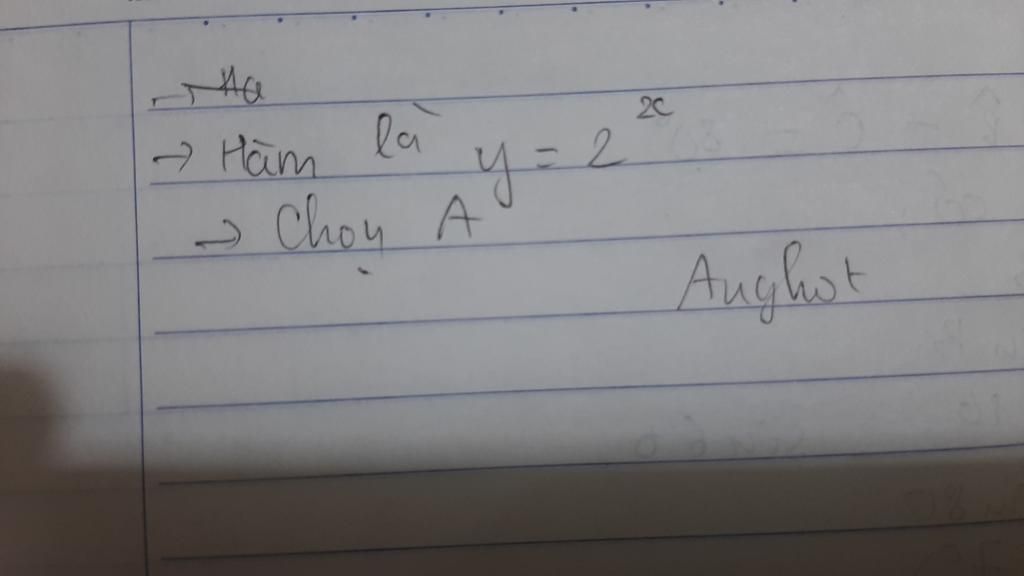 → Hàm là y = 2^x
→ Chọn A
Anghot